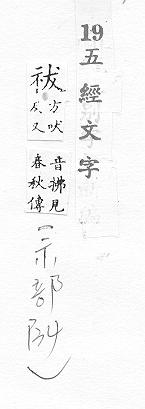 19五經文字
祓方吠
反又
音拂見
春秋傳
(示部